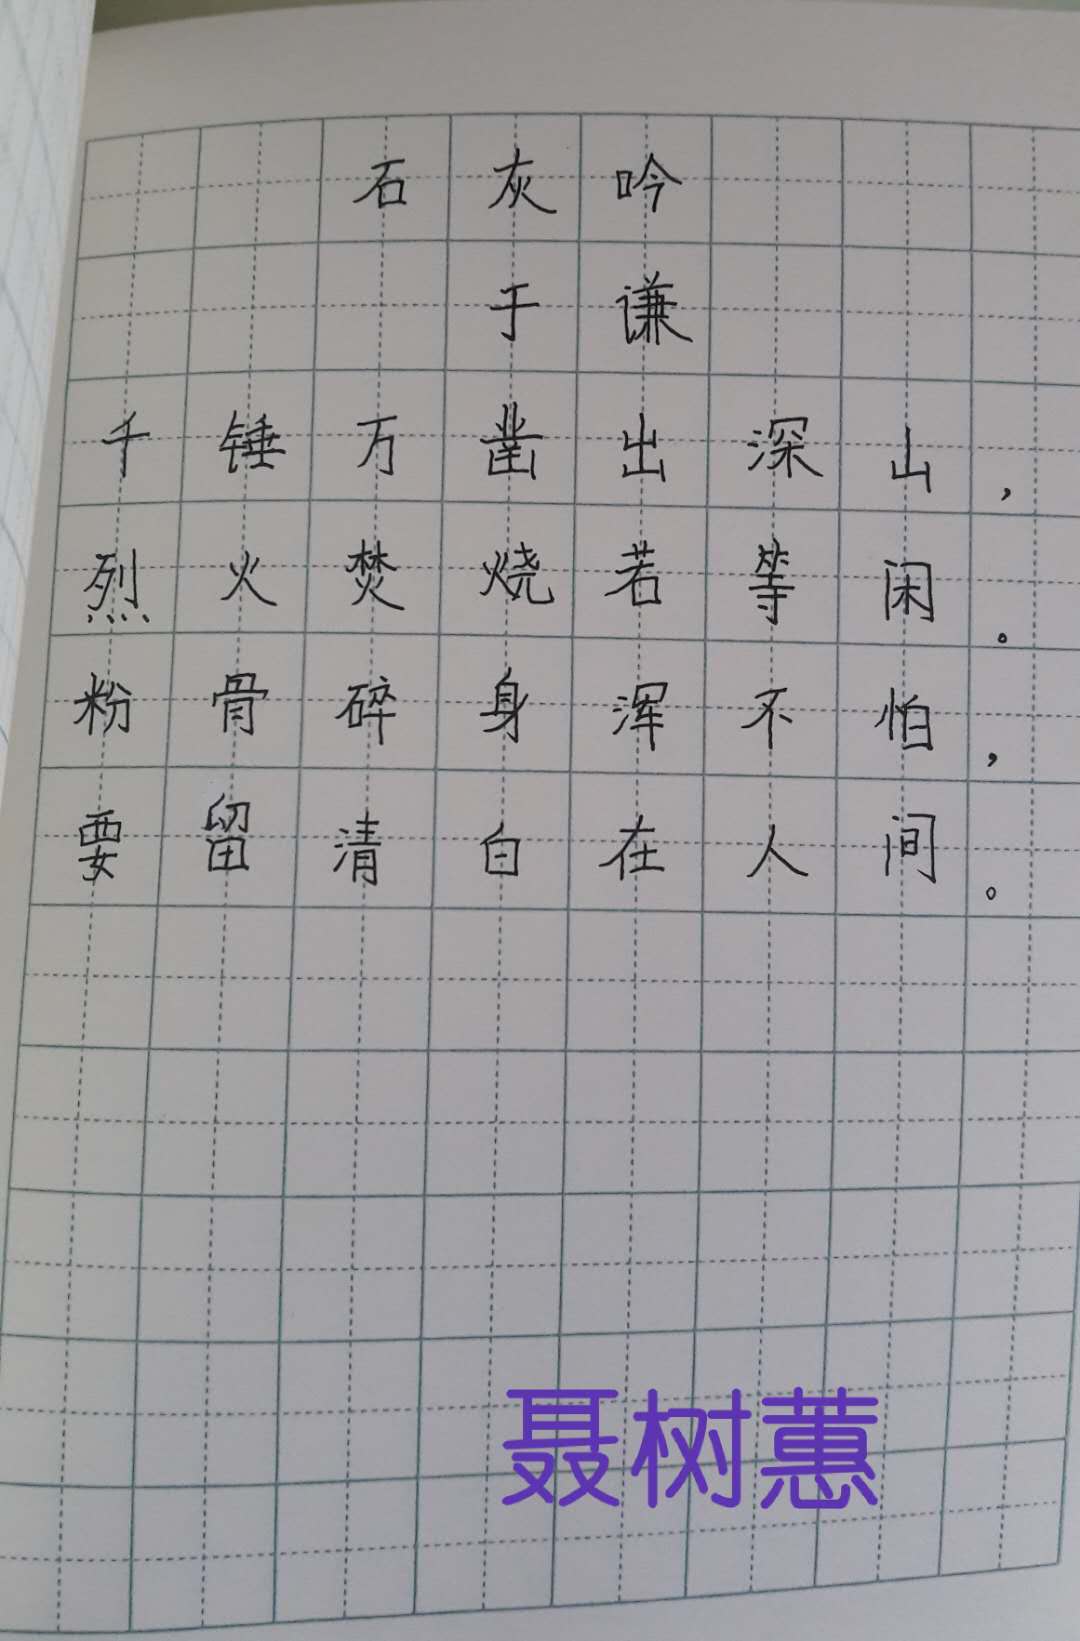 石灰吟
于谦
千锤万凿出深山，
烈火焚烧若等闲。
粉骨碎身浑不怕，
要留清白在人间。
聂树蕙